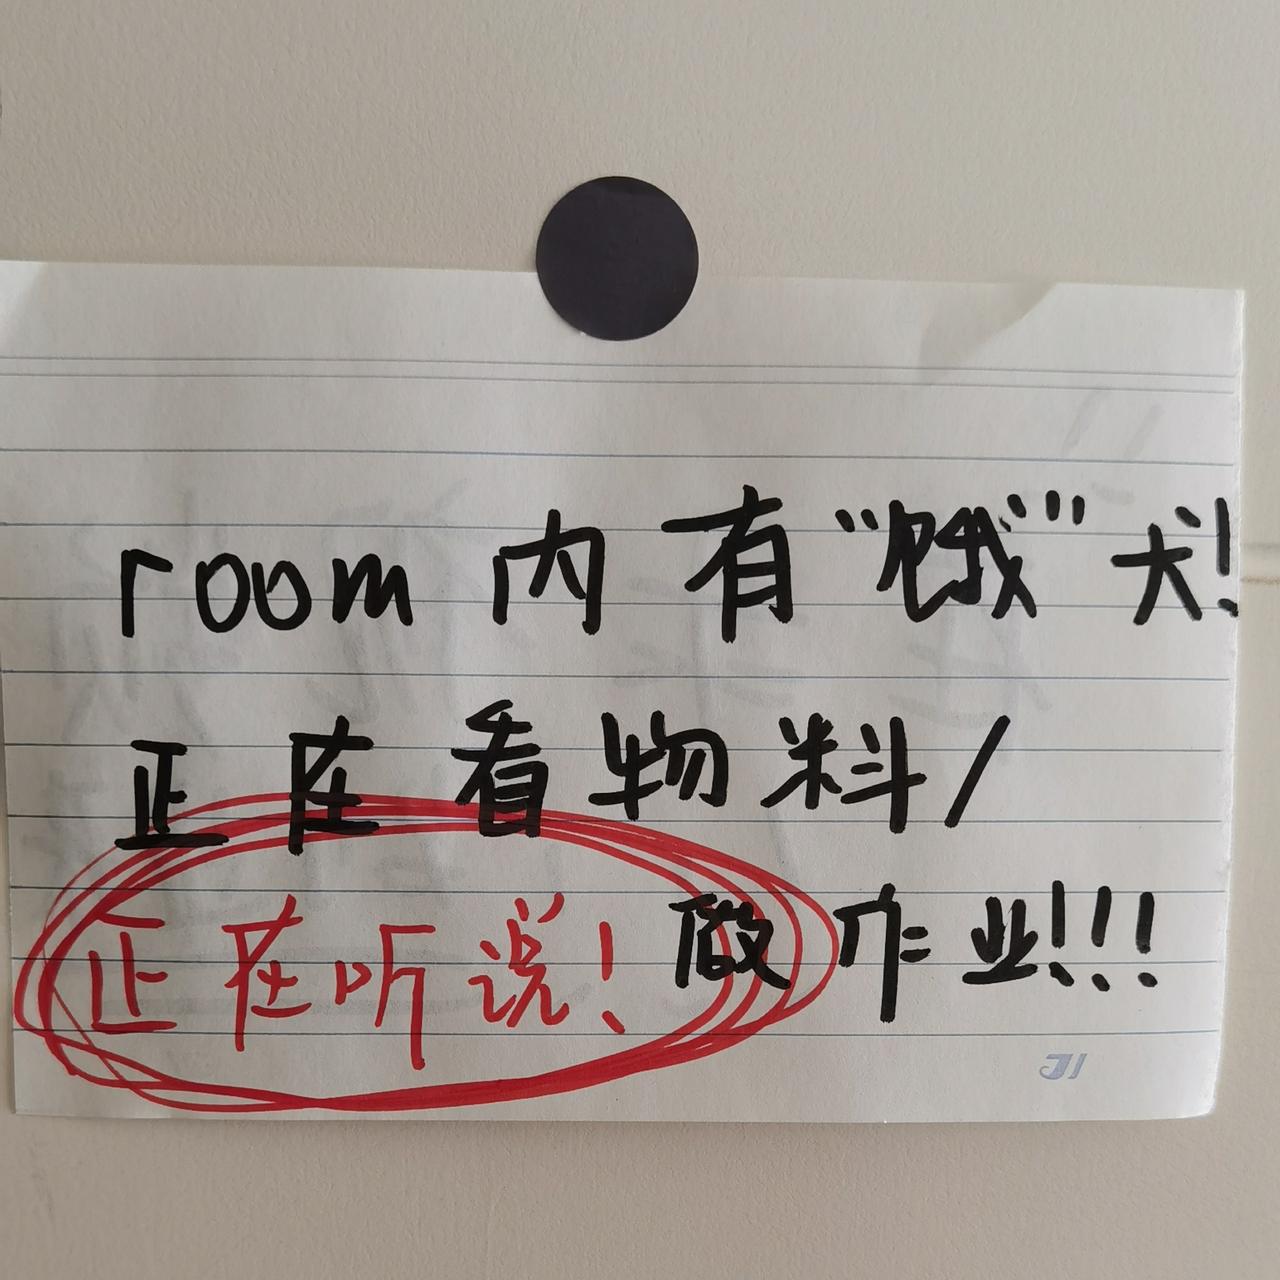 room 内有“饿”犬!
正在看物料/
正在听说! 做作业!!!